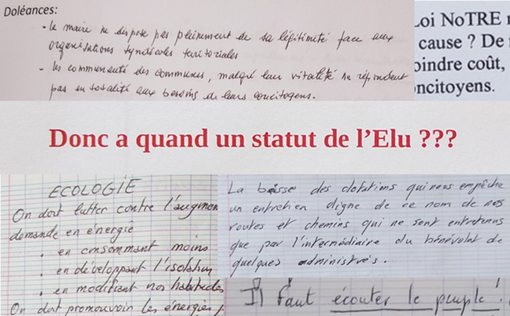 Doléances:
- Le maire ne dispose pas pleinement de sa légitimité face aux
organisations syndicales territoriales
- les communautés des communes, malgré leur vitalité ne répondent
pas en totalité aux besoins de leurs concitoyens.
Loi NoTRE
cause ? De
oindre coût,
ncitoyens.
Donc a quand un statut de l'Elu ???
ECOLOGIE
On doit lutter contre l'augmen
demande en énergie
. en consommant moins
. en développant l'isolation
. en modifiant nos habitudes
On doit promouvoir les énergies
La baisse des dotations qui nous empêche
un entretien digne de ce nom de nos
routes et chemins qui ne sont entretenus
que par l'intermédiaire du bénévolat de
quelques administrés.
Il faut écouter le peuple !